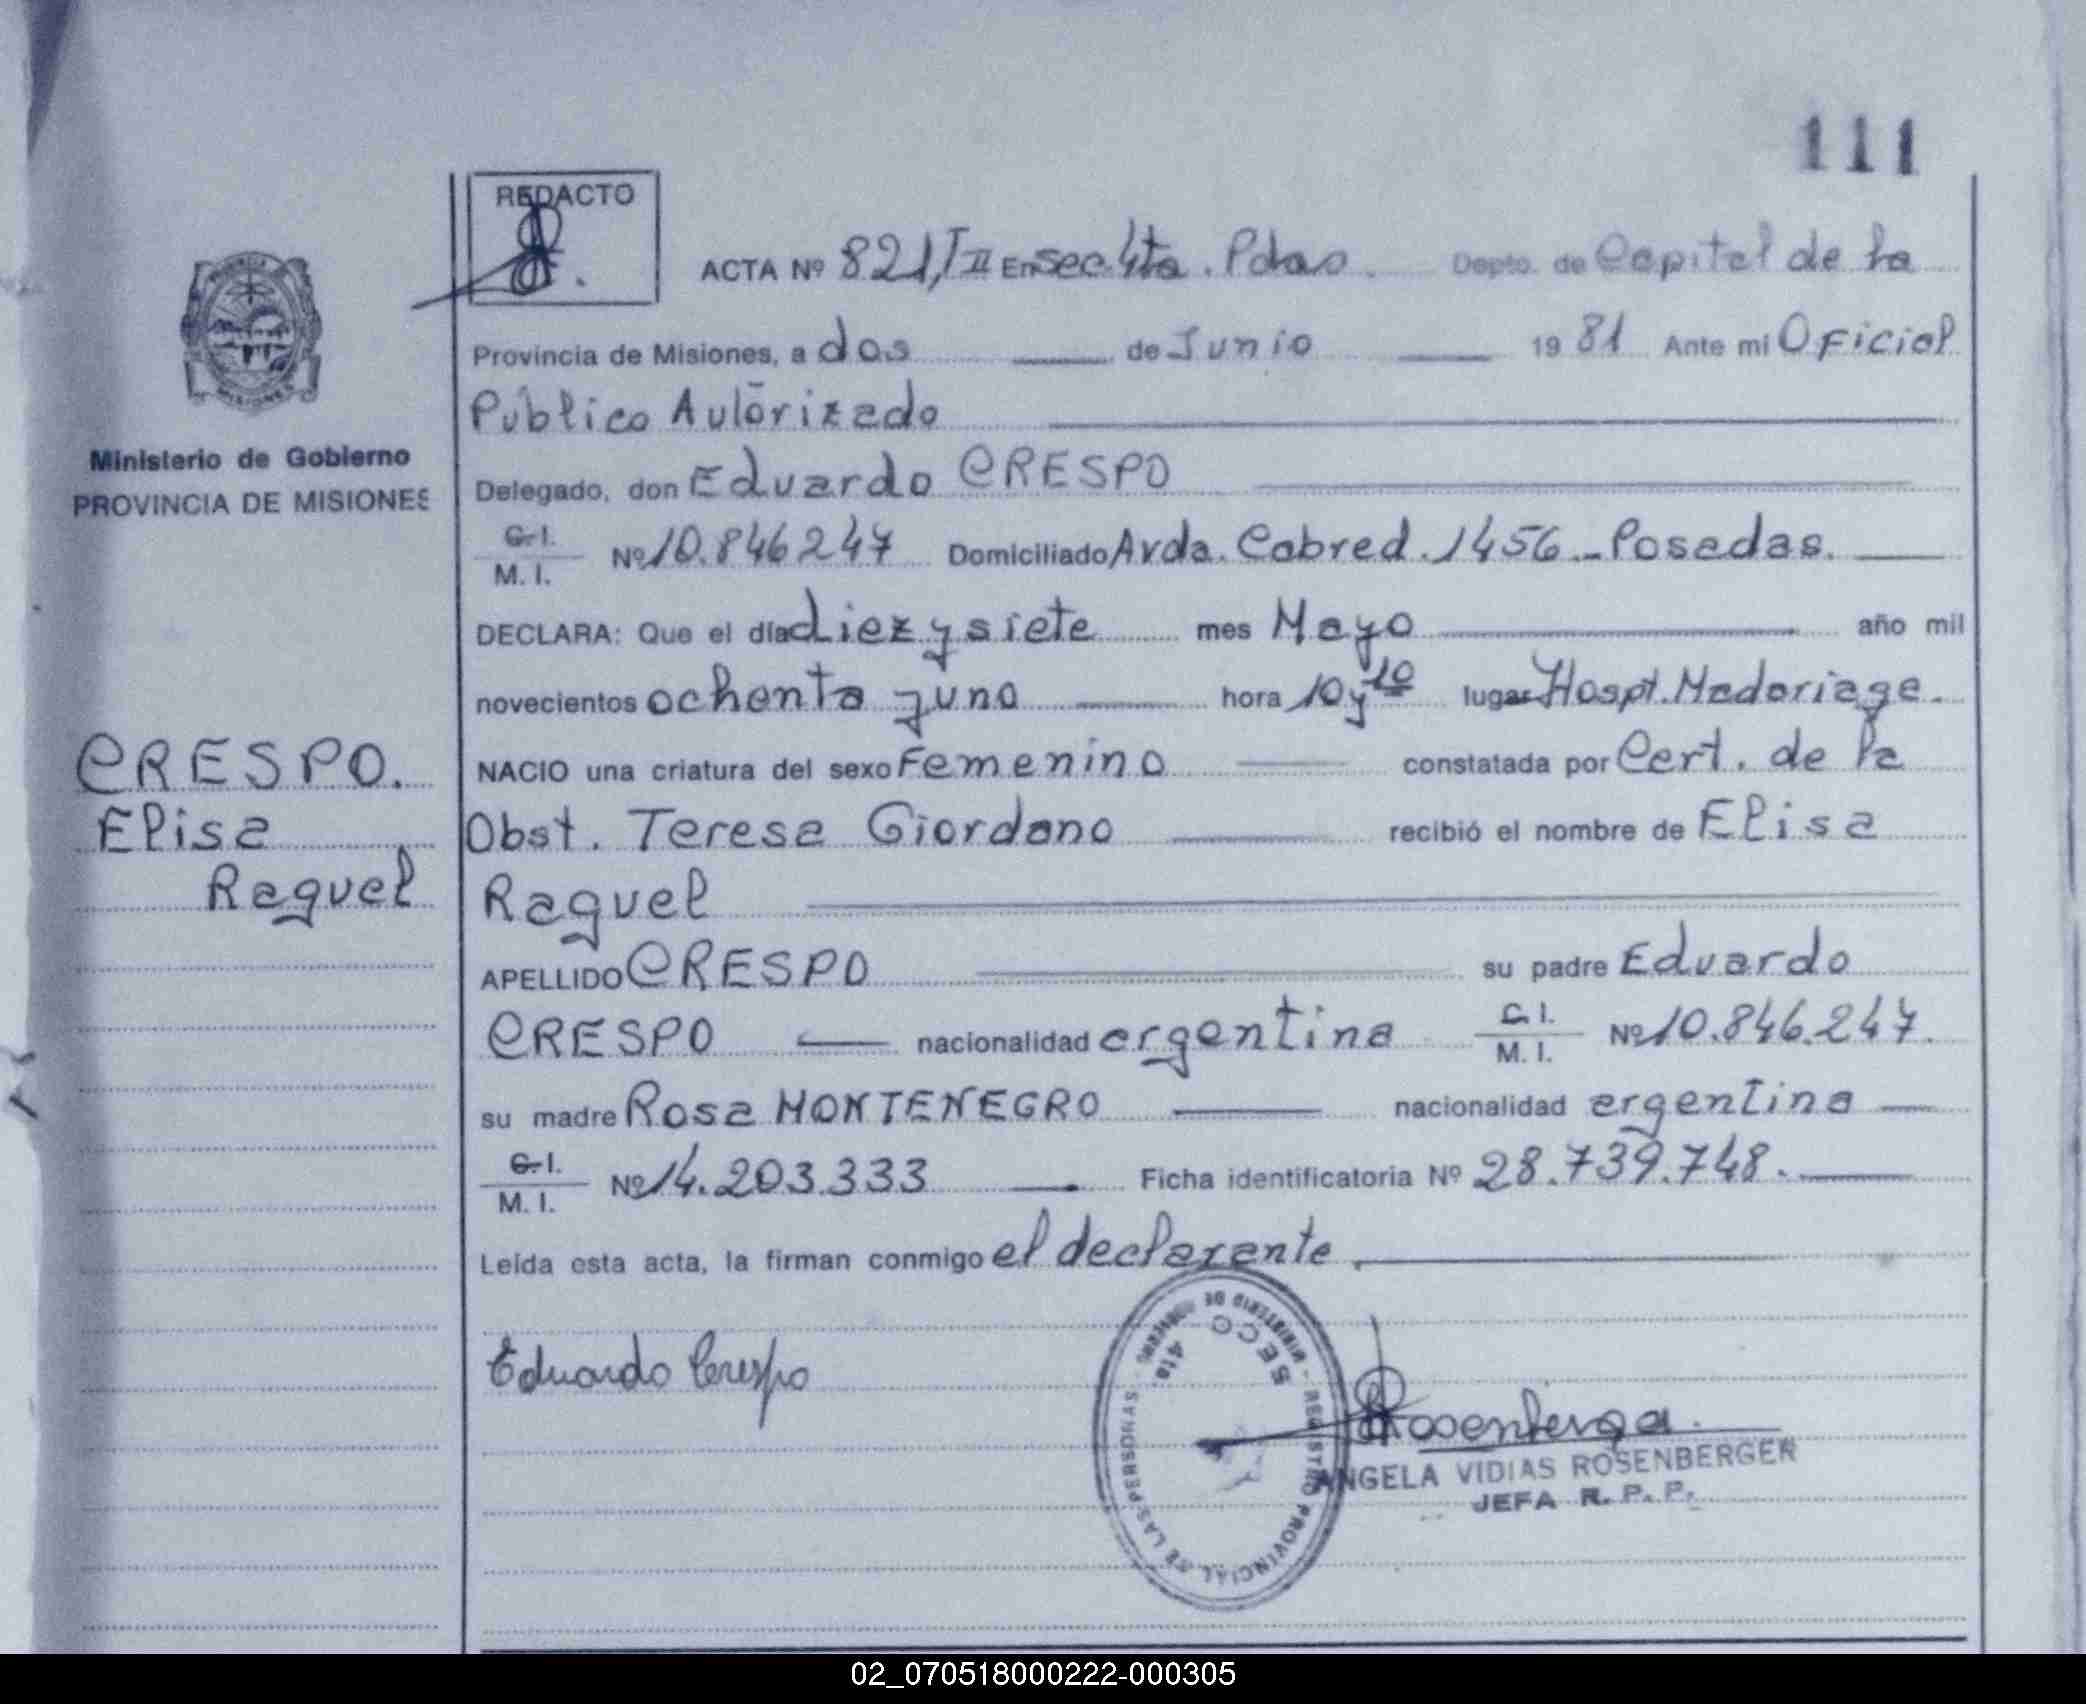 111
REDACTO
ACTA Nº 821, T II En Sec. 4ta. Pdas. Depto. de Capital de la
Provincia de Misiones, a dos de Junio 19 81 Ante mi Oficial
Público Autorizado
Ministerio de Gobierno
PROVINCIA DE MISIONES
Delegado, don Eduardo CRESPO
C.I.
M. I. Nº 10.846247 Domiciliado Avda. Cabred. 1456 - Posadas.
DECLARA: Que el día diez y siete mes Mayo año mil
novecientos ochenta y uno hora 10 y 10 lugar Hospt. Madariaga.
CRESPO.
NACIO una criatura del sexo Femenino constatada por Cert. de la
Elisa
Obst. Teresa Giordano recibió el nombre de Elisa
Raquel
Raquel
APELLIDO CRESPO su padre Eduardo
CRESPO nacionalidad argentina C.I.
M. I. Nº 10.846.247.
su madre Rosa MONTENEGRO nacionalidad argentina
C.I.
M. I. Nº 14.203.333 Ficha identificatoria Nº 28.739.748.
Leída esta acta, la firman conmigo el declarante
Eduardo Crespo
MINISTERIO DE GOBIERNO - REGISTRO PROVINCIAL DE LAS PERSONAS
SECC 4ta.
ANGELA VIDIAS ROSENBERGER
JEFA R. P. P.
02_070518000222-000305